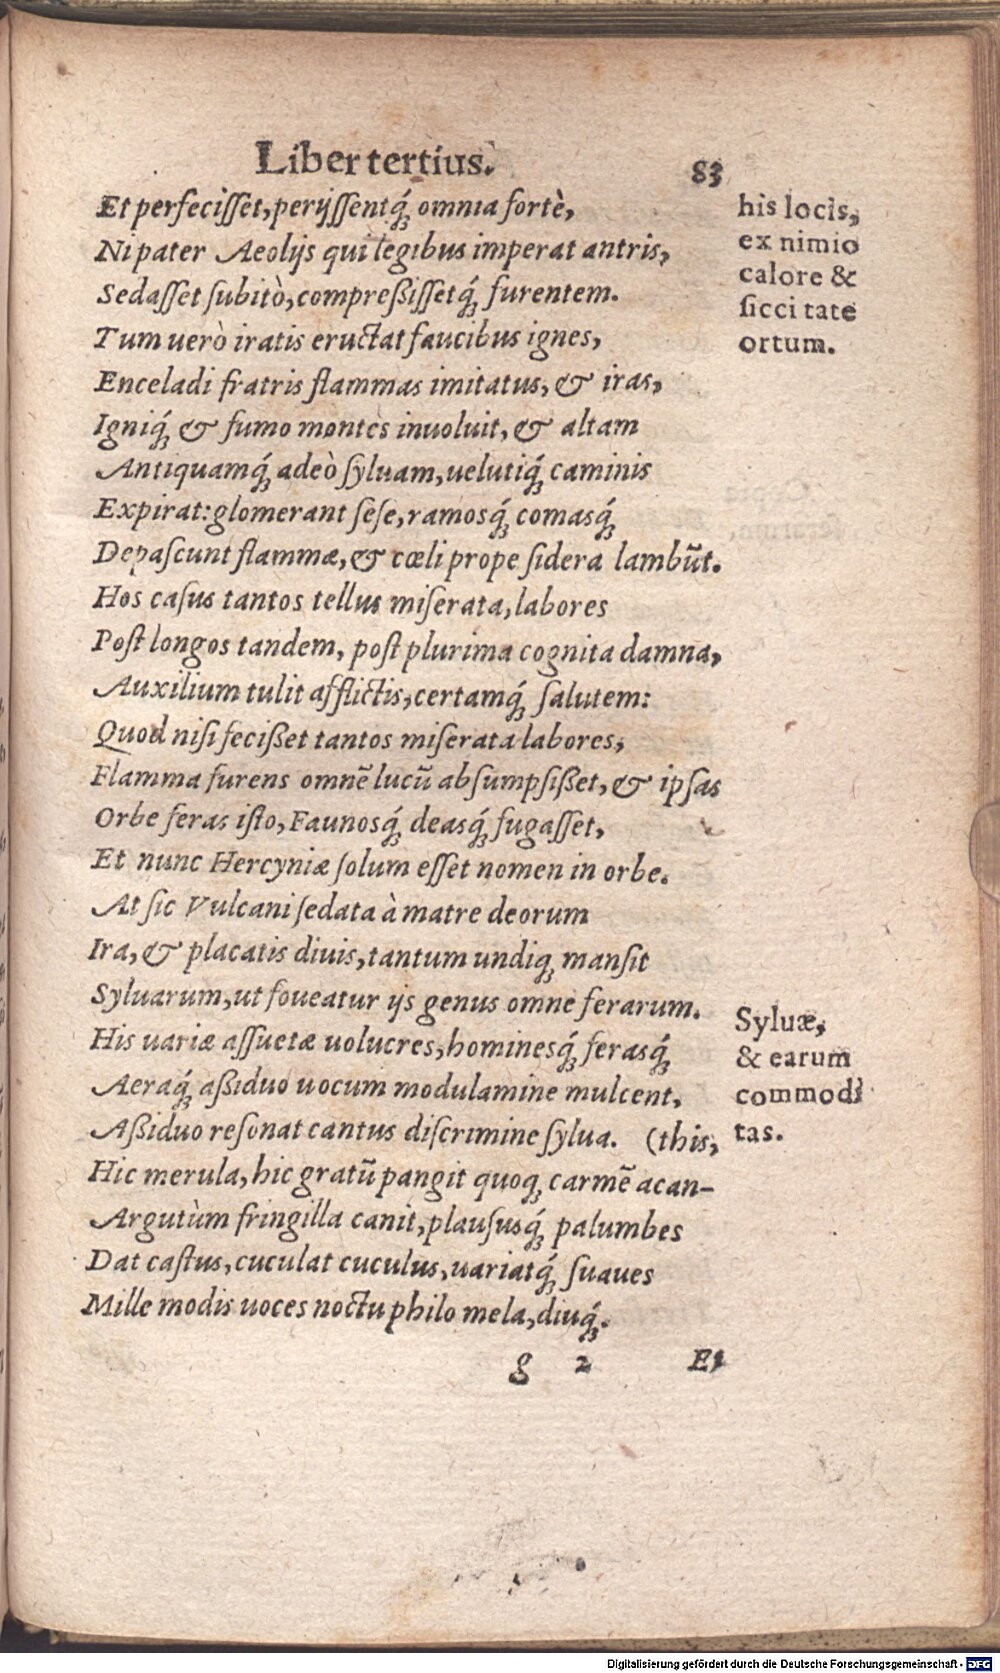 Liber tertius. 83
Et perfeciſſet, perijſſentq́; omnia fortè,
Ni pater Aeolijs qui legibus imperat antris,
Sedaſſet ſubitò, compreßiſſetq́; furentem.
Tum uerò iratis eructat faucibus ignes,
Enceladi fratris flammas imitatus, & iras,
Igniq́; & fumo montes inuoluit, & altam
Antiquamq́; adeò ſyluam, uelutiq́; caminis
Expirat: glomerant ſeſe, ramosq́; comasq́;
Depaſcunt flammæ, & cœli prope ſidera lambūt.
Hos caſus tantos tellus miſerata, labores
Poſt longos tandem, poſt plurima cognita damna,
Auxilium tulit afflictis, certamq́; ſalutem:
Quod niſi fecißet tantos miſerata labores,
Flamma furens omnē lucū abſumpſißet, & ipſas
Orbe feras iſto, Faunosq́; deasq́; fugaſſet,
Et nunc Hercyniæ ſolum eſſet nomen in orbe.
At ſic Vulcani ſedata à matre deorum
Ira, & placatis diuis, tantum undiq; manſit
Syluarum, ut foueatur ijs genus omne ferarum.
His uariæ aſſuetæ uolucres, hominesq́; ferasq́;
Aeraq́; aßiduo uocum modulamine mulcent,
Aßiduo reſonat cantus diſcrimine ſylua. (this,
Hic merula, hic gratū pangit quoq; carmē acan-
Argutùm fringilla canit, plauſusq́; palumbes
Dat caſtus, cuculat cuculus, uariatq́; ſuaues
Mille modis uoces noctu philo mela, diuq́;.
g 2 Et
his locis,
ex nimio
calore &
ſicci tate
ortum.
Syluæ,
& earum
commodi
tas.
Digitalisierung gefördert durch die Deutsche Forschungsgemeinschaft - DFG